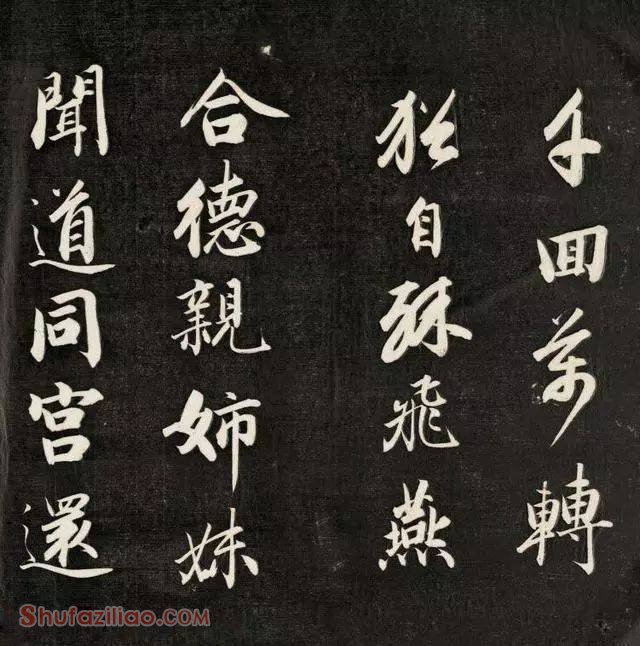 千囬萬轉
猶自殊飛燕
合德親姉妹
聞道同宮還
Shufaziliao.com